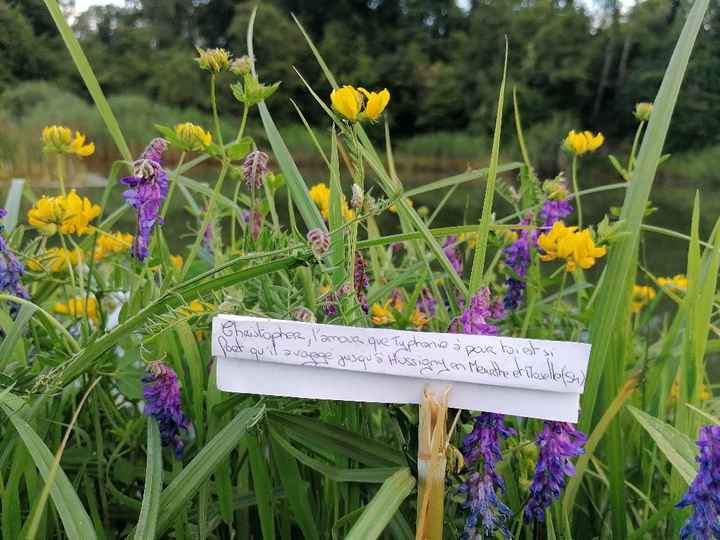 Christopher, l'amour que Typhanie à pour toi et si
fort qu'il a voyagé jusqu'à Hussigny en Meurthe et Moselle (54)